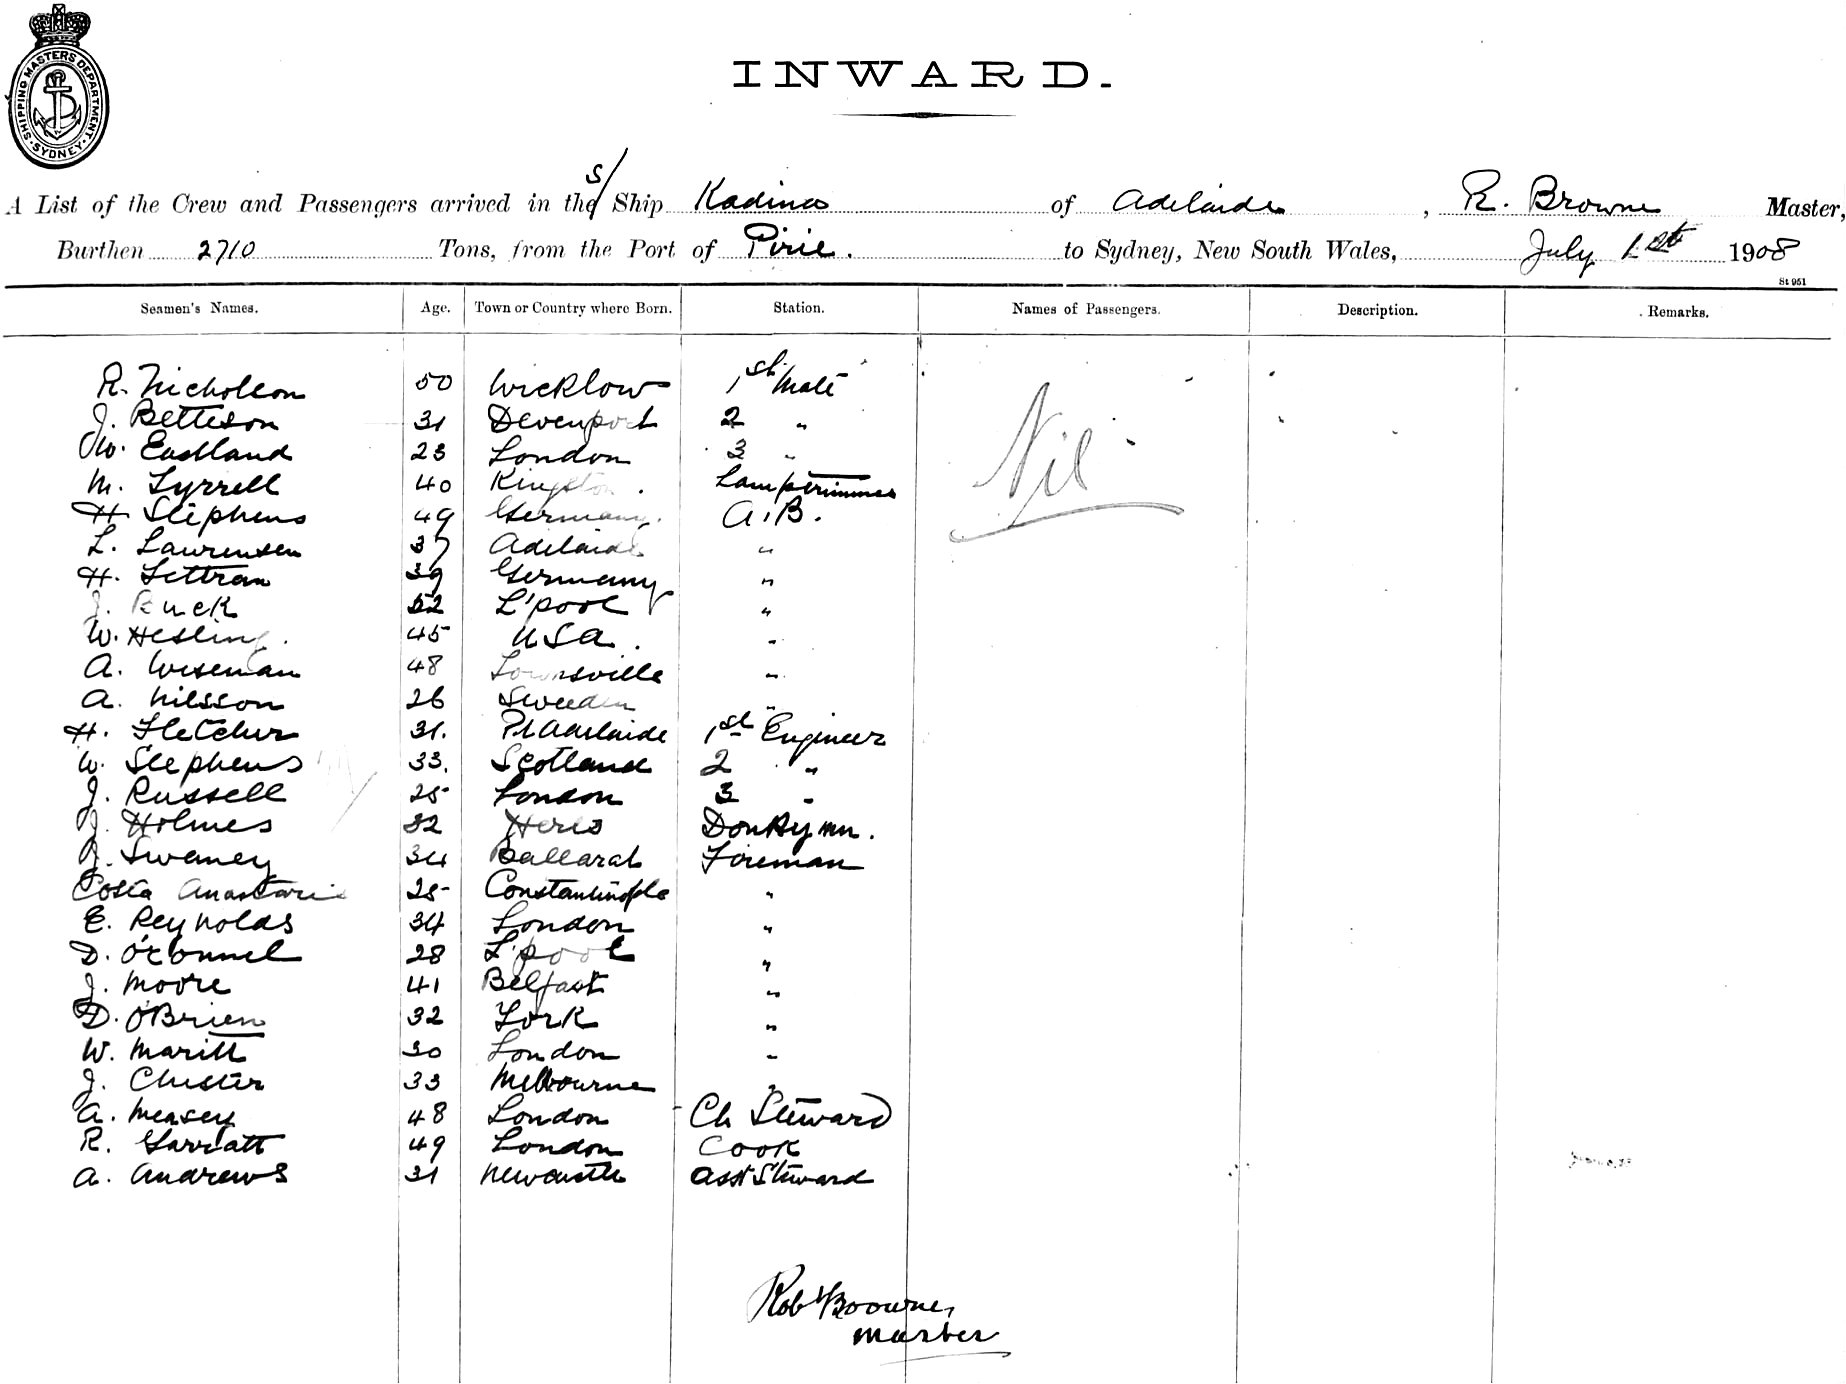 SHIPPING MASTERS DEPARTMENT · SYDNEY ·
INWARD.
A List of the Crew and Passengers arrived in the S/ Ship Kadina of Adelaide, R. Browne Master,
Burthen 2710 Tons, from the Port of Pirie. to Sydney, New South Wales, July 1st 1908
St 951
Seamen's Names. Age. Town or Country where Born. Station. Names of Passengers. Description. Remarks.
R. Nicholson 50 Wicklow 1st Mate
J. Betteson 31 Devenport 2 "
W. Eastland 23 London 3 "
M. Tyrrell 40 Kingston. Lamptrimmer
H Stephens 49 Germany. A.B.
L. Laurensen 37 Adelaide "
H. Lettran 39 Germany "
J. Buck 52 L'pool "
W. Hesling. 45 USA. "
A. Wiseman 48 Townsville "
A. Nilsson 26 Sweden "
H. Fletcher 31. Pt Adelaide 1st Engineer
W. Stephens 33. Scotland 2 "
J. Russell 25 London 3 "
J. Holmes 32 Donkeymn.
J. Swaney 34 Ballarat Fireman
Costa 25 Constantinople "
E. Reynolds 34 London "
D. O'Connel 28 L'pool "
J. Moore 41 Belfast "
D. O'Brien 32 York "
W. Maritt 30 London "
J. Chester 33 Melbourne "
A. Measey 48 London Ch Steward
R. Garratt 49 London Cook
A. Andrews 31 Newcastle Asst Steward
Nil
Robt Browne,
Master